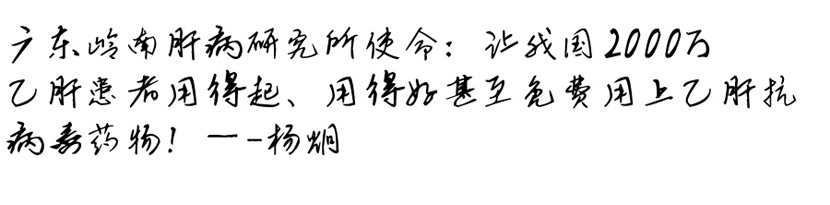 广东岭南肝病研究所使命：让我国2000万
乙肝患者用得起、用得好甚至免费用上乙肝抗
病毒药物！一--杨炯